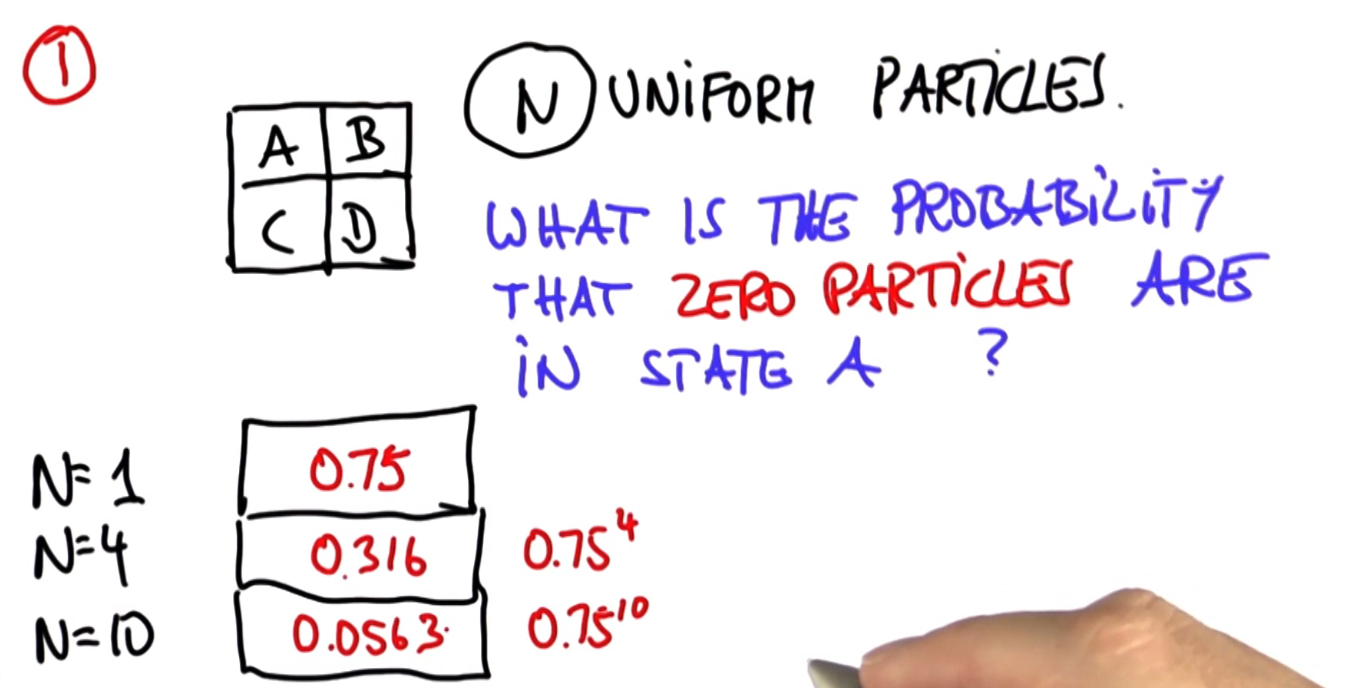 1
N UNIFORM PARTICLES.
A B
C D
WHAT IS THE PROBABILITY
THAT ZERO PARTICLES ARE
IN STATE A ?
N=1 0.75
N=4 0.316 0.75⁴
N=10 0.0563 0.75¹⁰